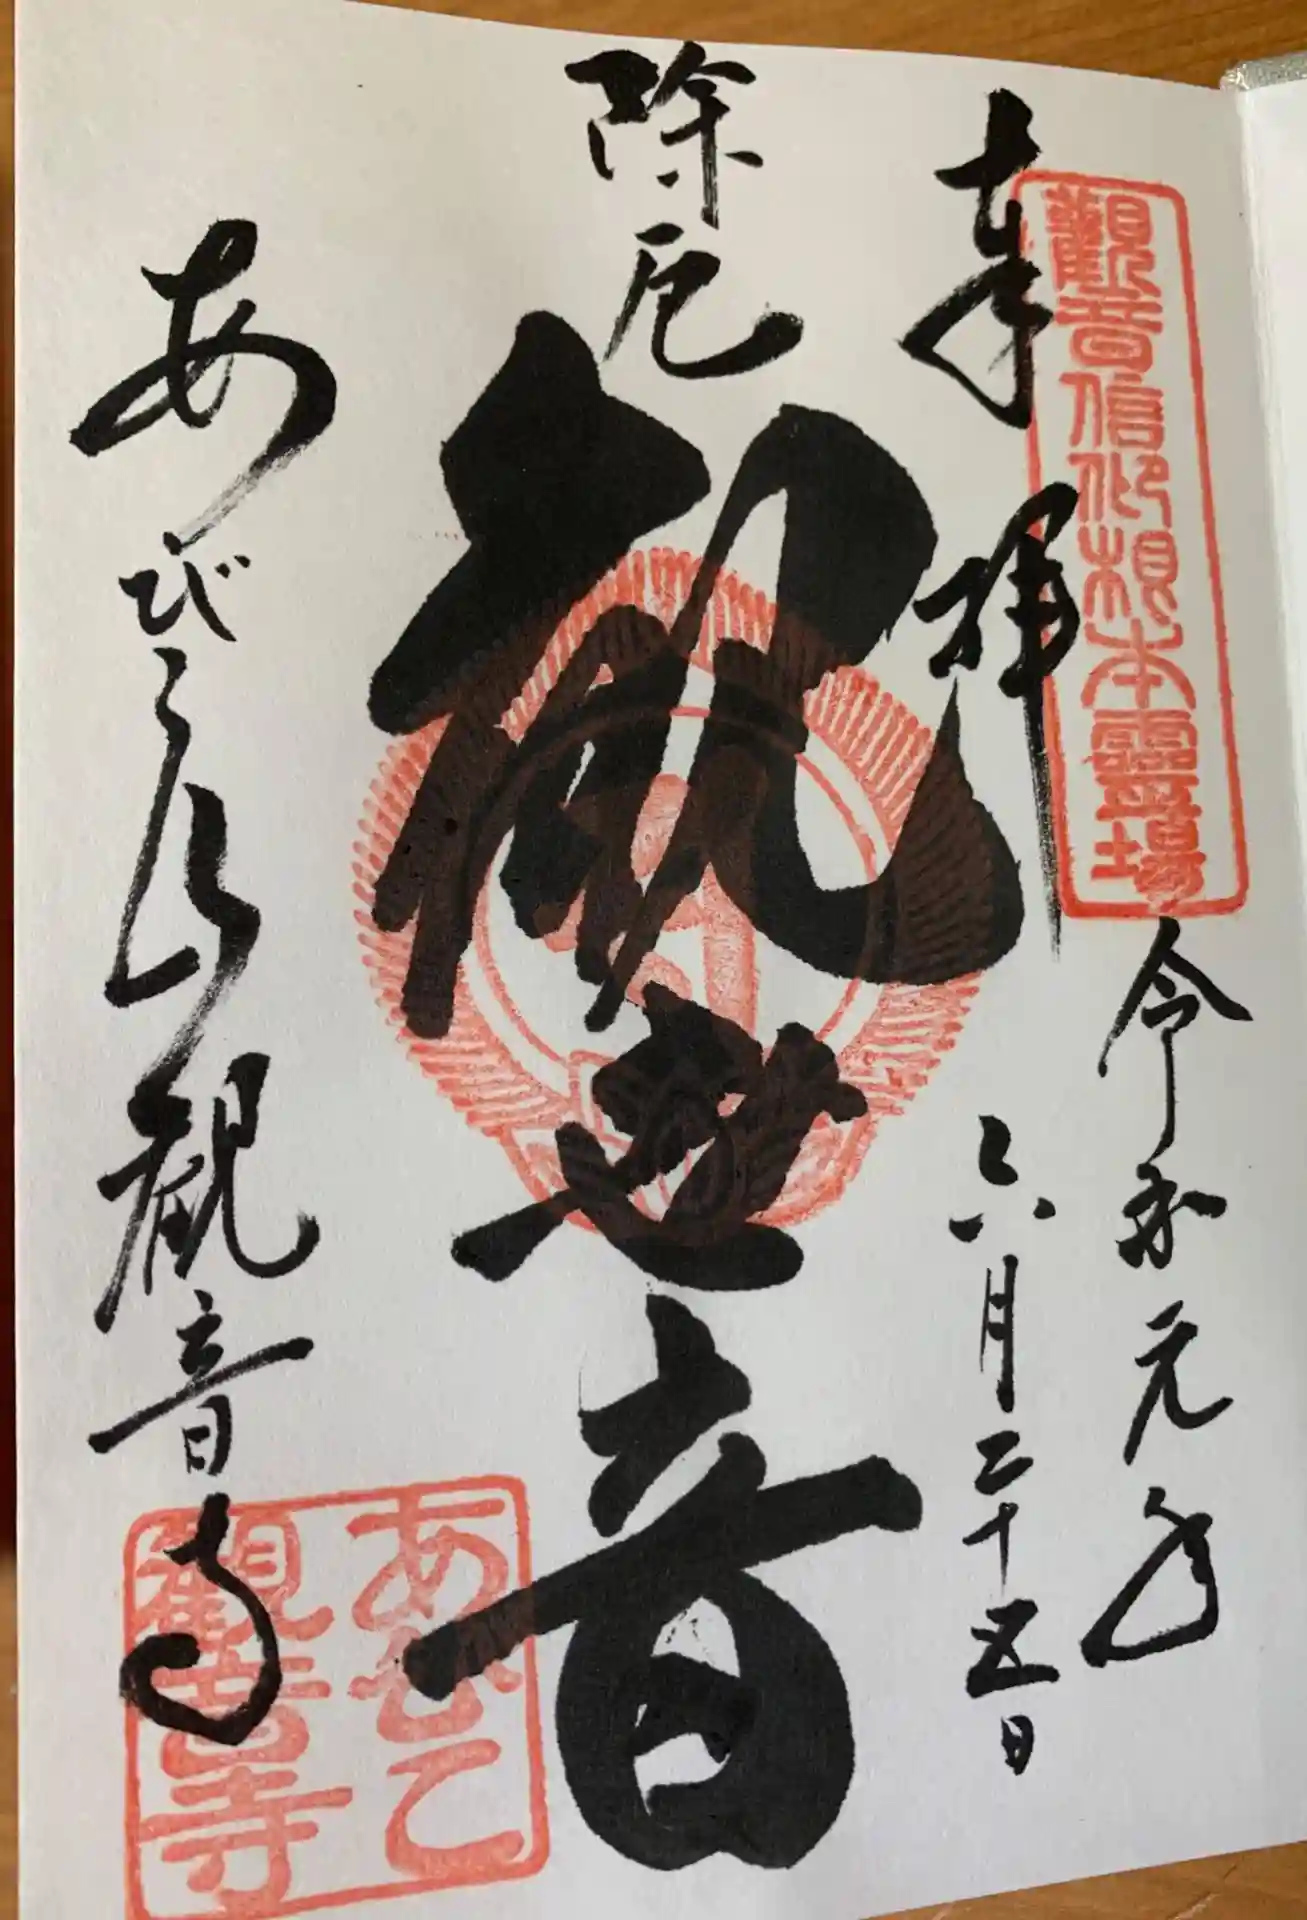 觀音信仰根本霊場
奉拝
令和元年
六月二十五日
除厄
観世音
あびこ山観音寺
あびこ
觀音寺